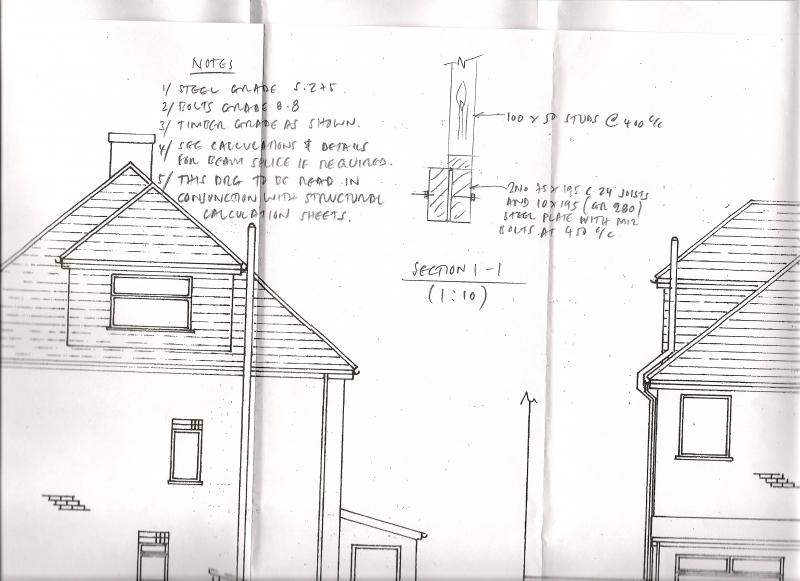 NOTES
1/ STEEL GRADE S.275.
2/ BOLTS GRADE 8.8
3/ TIMBER GRADE AS SHOWN.
4/ SEE CALCULATIONS & DETAILS
FOR BEAM SPLICE IF REQUIRED.
5/ THIS DRG TO BE READ IN
CONJUNCTION WITH STRUCTURAL
CALCULATION SHEETS.
100 x 50 STUDS @ 400 c/c
2NO 75 x 195 C 24 JOISTS
AND 10 x 195 (GR 280)
STEEL PLATE WITH M12
BOLTS AT 450 c/c
SECTION 1-1
(1:10)